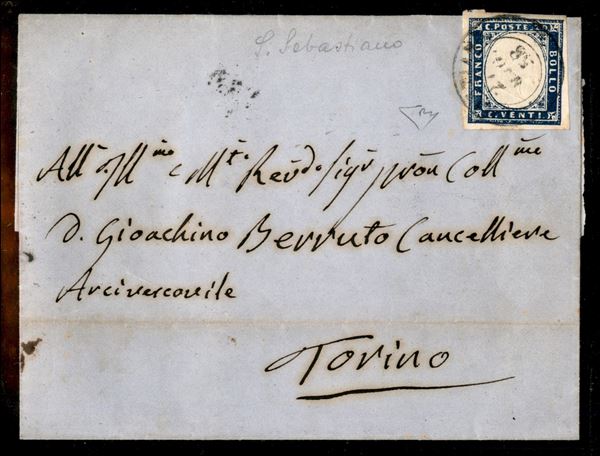 S. Sebastiano
C. POSTE 20
FRANCO
BOLLO
C. VENTI
58
All' Ill.mo e M.to Rev.do Sig.r Pron Coll.mo
D. Gioachino Berruto Cancelliere
Arcivescovile
Torino